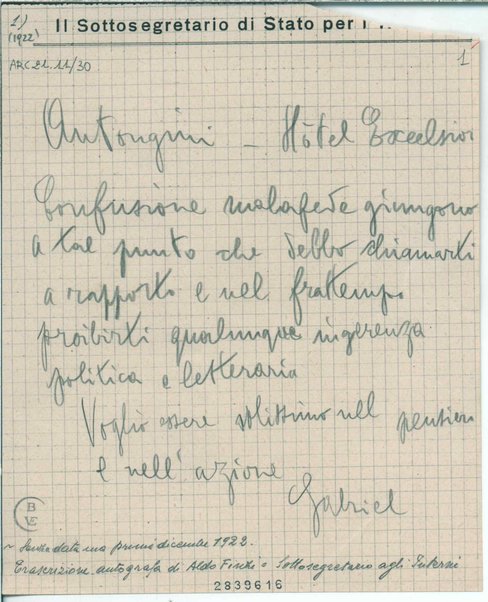 1)
(1922)
Il Sottosegretario di Stato per l'
ARC 21.11/30
1
Antongini – Hôtel Excelsior
Confusione malafede giungono
a tal punto che debbo chiamarti
a rapporto e nel frattempo
proibirti qualunque ingerenza
politica e letteraria
Voglio essere solissimo nel pensiero
e nell'azione
Gabriel
B
VE
~ Senza data ma primi dicembre 1922.
Trascrizione autografa di Aldo Finzi Sottosegretario agli Interni
2839616